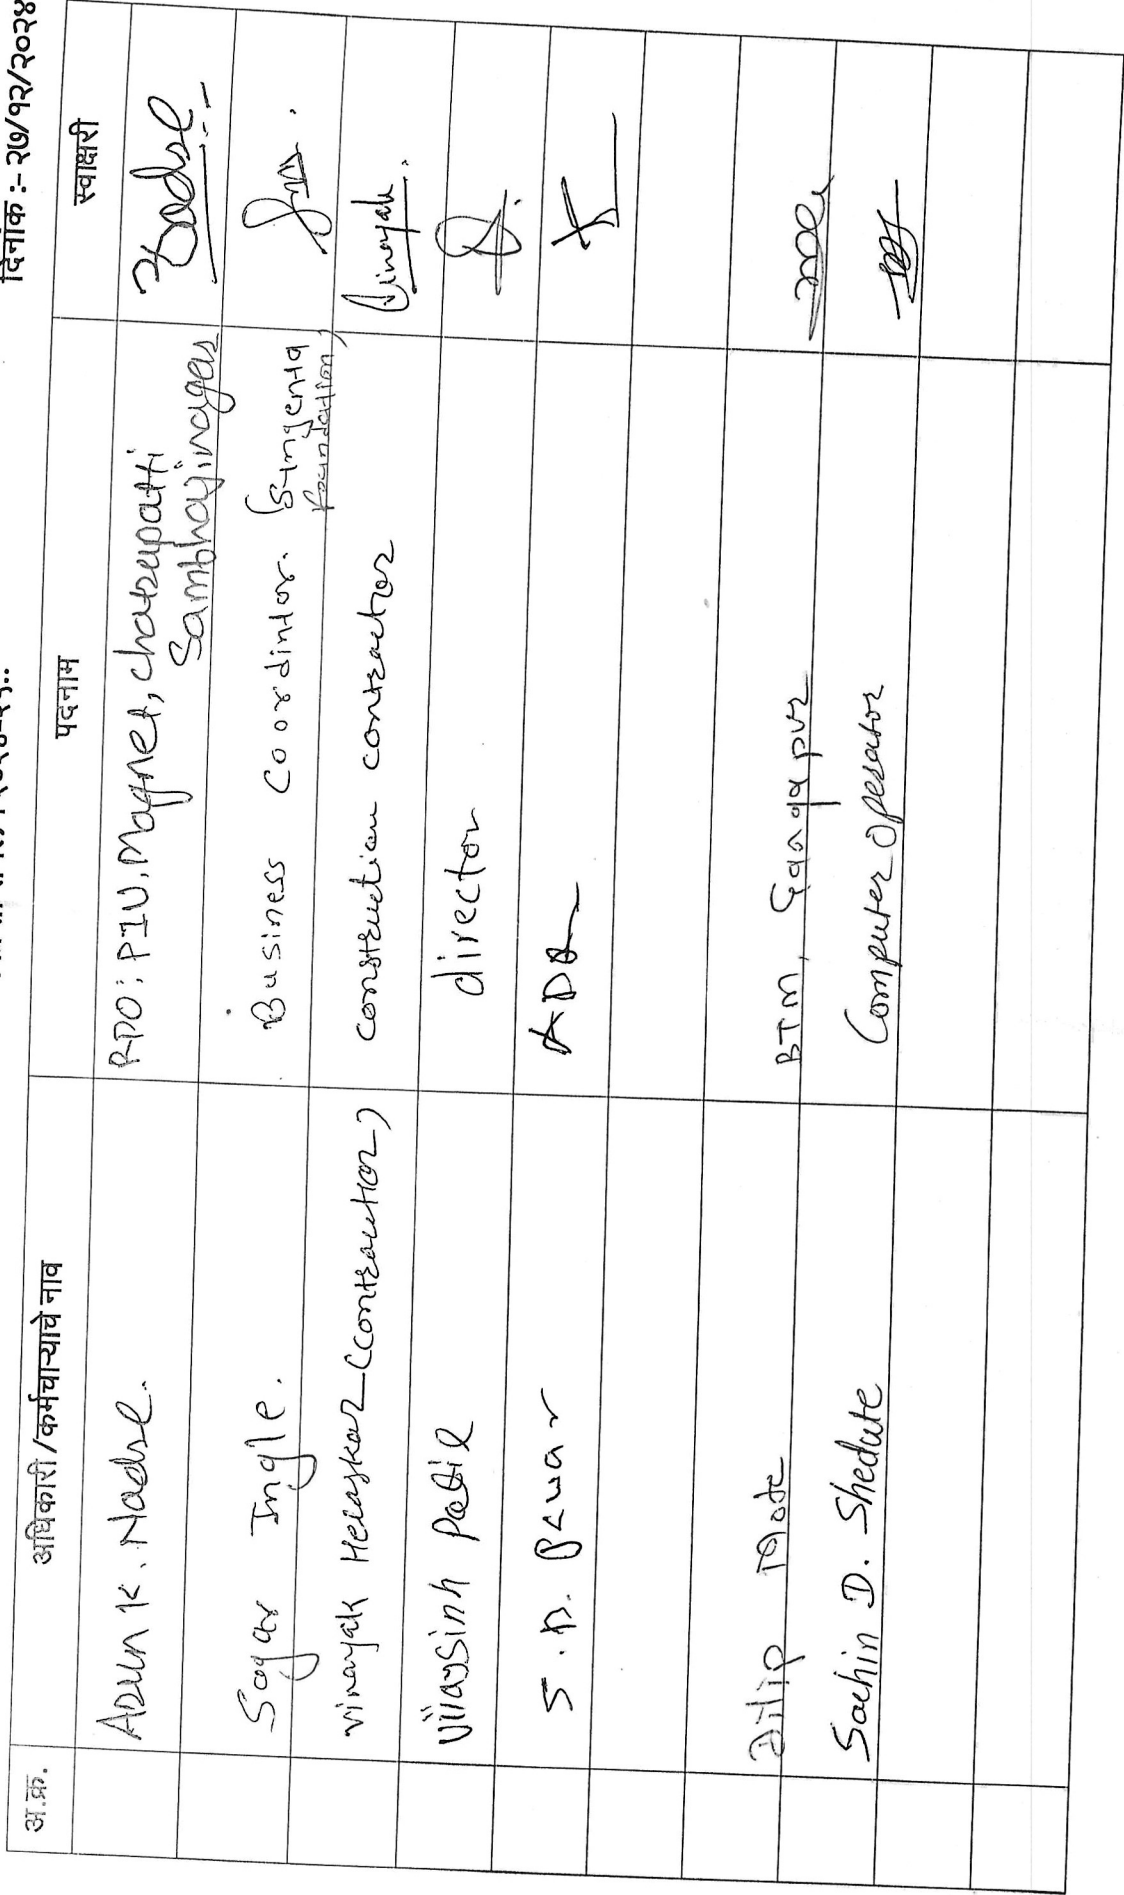 दिनांक :- २७/१२/२०२४
अ.क्र. अधिकारी /कर्मचाऱ्याचे नाव पदनाम स्वाक्षरी
Arun K. Nadse. RPO: PIU. Magnet, chatrapatti
Sambhajinagar
Sagar Ingle. Business Coordintor. (Syngenta
foundation)
vinayak (contractor) construction contractor Vinayak
Vijaysinh Patil director
S. D. Pawar ADA
Dilip Mote BTM, Gangapur
Sachin D. Shedute Computer operator